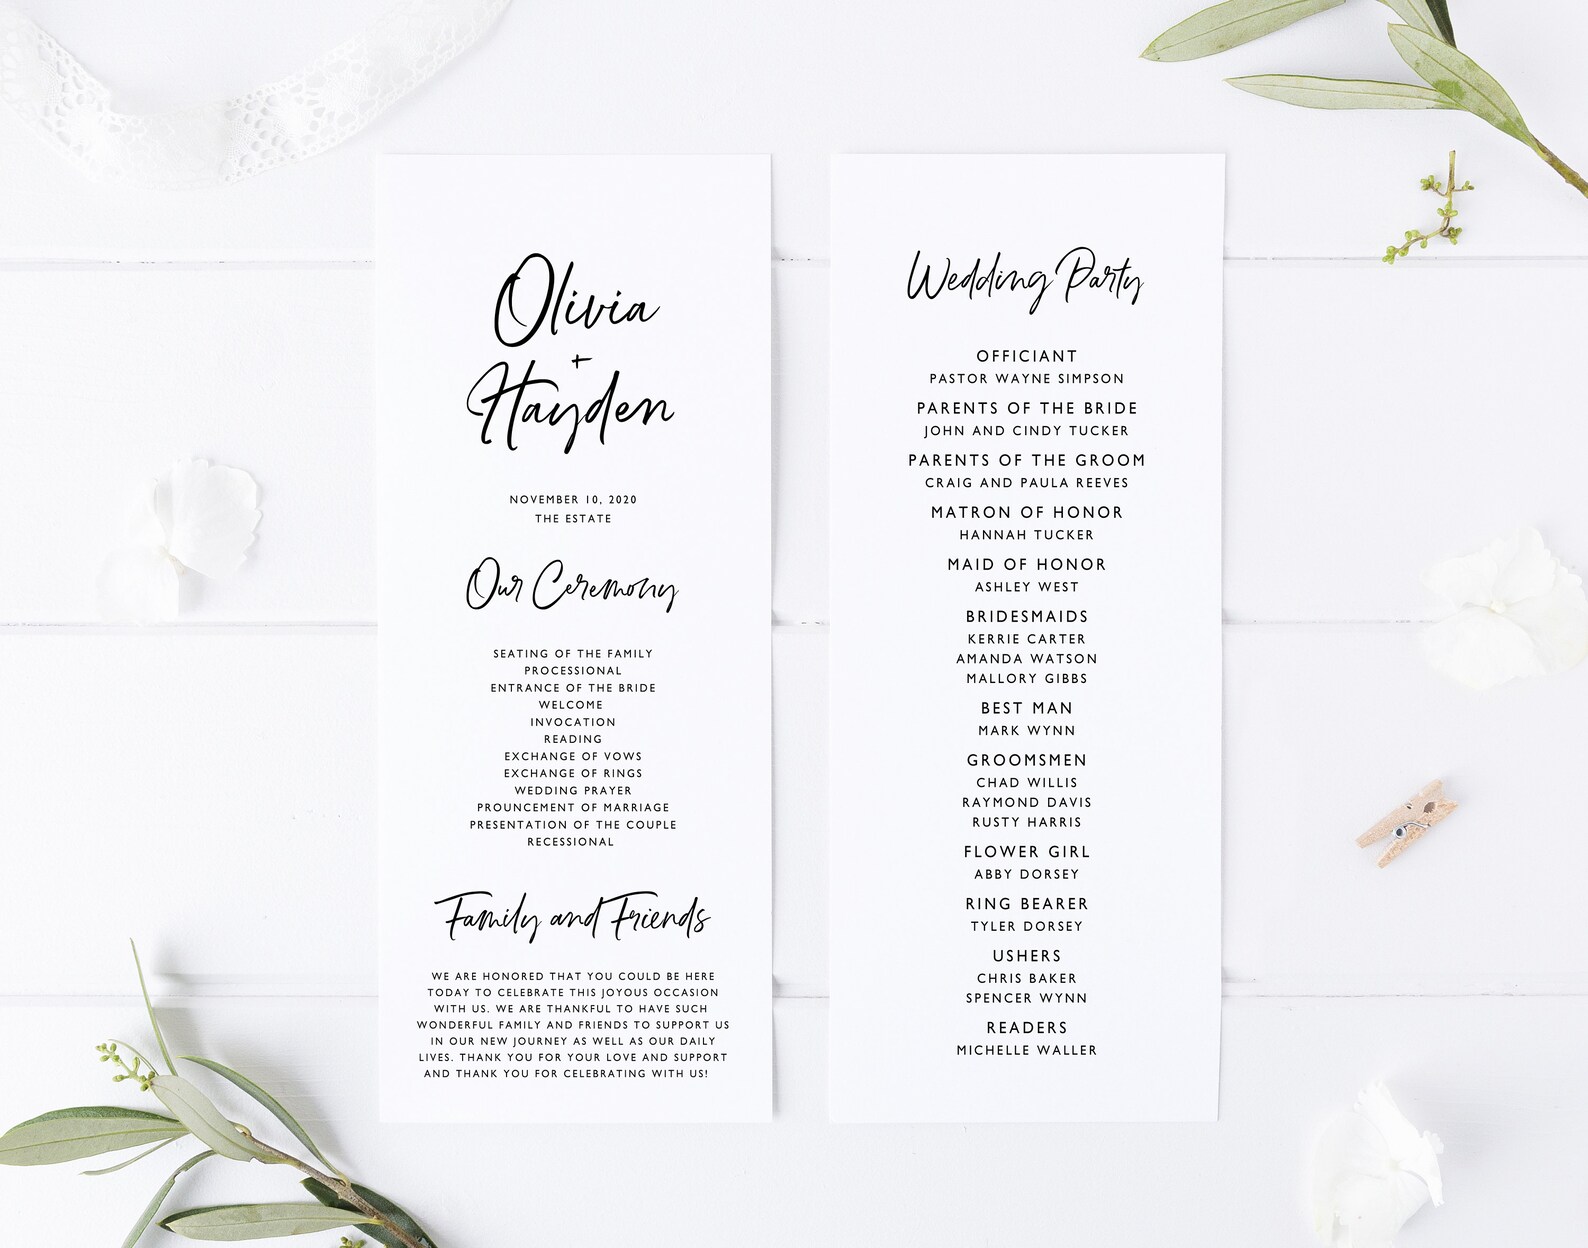 Olivia
+
Hayden
NOVEMBER 10, 2020
THE ESTATE
Our Ceremony
SEATING OF THE FAMILY
PROCESSIONAL
ENTRANCE OF THE BRIDE
WELCOME
INVOCATION
READING
EXCHANGE OF VOWS
EXCHANGE OF RINGS
WEDDING PRAYER
PROUNCEMENT OF MARRIAGE
PRESENTATION OF THE COUPLE
RECESSIONAL
Family and Friends
WE ARE HONORED THAT YOU COULD BE HERE
TODAY TO CELEBRATE THIS JOYOUS OCCASION
WITH US. WE ARE THANKFUL TO HAVE SUCH
WONDERFUL FAMILY AND FRIENDS TO SUPPORT US
IN OUR NEW JOURNEY AS WELL AS OUR DAILY
LIVES. THANK YOU FOR YOUR LOVE AND SUPPORT
AND THANK YOU FOR CELEBRATING WITH US!
Wedding Party
OFFICIANT
PASTOR WAYNE SIMPSON
PARENTS OF THE BRIDE
JOHN AND CINDY TUCKER
PARENTS OF THE GROOM
CRAIG AND PAULA REEVES
MATRON OF HONOR
HANNAH TUCKER
MAID OF HONOR
ASHLEY WEST
BRIDESMAIDS
KERRIE CARTER
AMANDA WATSON
MALLORY GIBBS
BEST MAN
MARK WYNN
GROOMSMEN
CHAD WILLIS
RAYMOND DAVIS
RUSTY HARRIS
FLOWER GIRL
ABBY DORSEY
RING BEARER
TYLER DORSEY
USHERS
CHRIS BAKER
SPENCER WYNN
READERS
MICHELLE WALLER